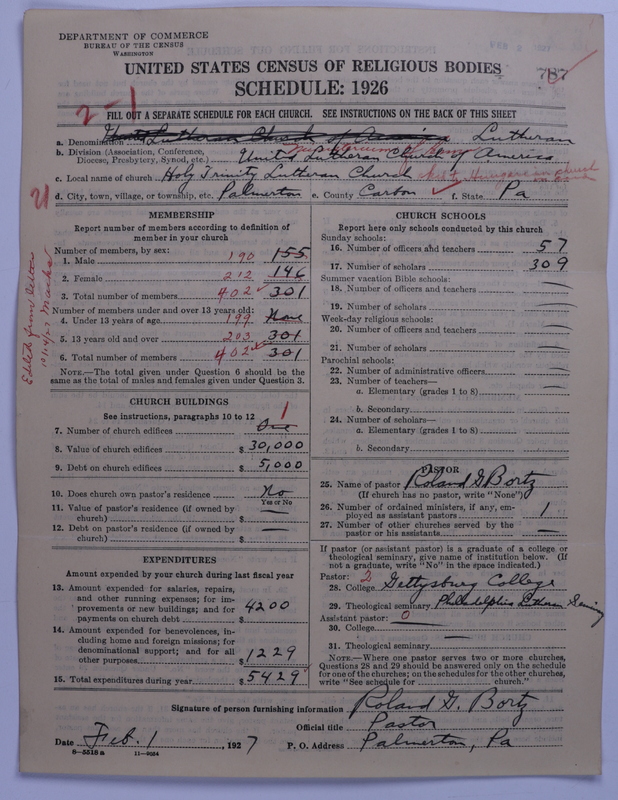 DEPARTMENT OF COMMERCE
BUREAU OF THE CENSUS
WASHINGTON
UNITED STATES CENSUS OF RELIGIOUS BODIES
787
SCHEDULE: 1926
2-1
FILL OUT A SEPARATE SCHEDULE FOR EACH CHURCH. SEE INSTRUCTIONS ON THE BACK OF THIS SHEET
a. Denomination United Lutheran Church of America Lutheran
b. Division (Association, Conference, Diocese, Presbytery, Synod, etc.) United Lutheran Church of America
c. Local name of church Holy Trinity Lutheran Church
d. City, town, village, or township, etc. Palmerton e. County Carbon f. State Pa
21
MEMBERSHIP
Report number of members according to definition of
member in your church
Number of members, by sex:
1. Male 190 155
2. Female 212 146
3. Total number of members 402 301
Number of members under and over 13 years old:
4. Under 13 years of age 199 None
5. 13 years old and over 203 301
6. Total number of members 402 301
NOTE.—The total given under Question 6 should be
the same as the total of males and females given under Question 3.
CHURCH BUILDINGS
See instructions, paragraphs 10 to 12
7. Number of church edifices One 1
8. Value of church edifices $ 30,000
9. Debt on church edifices $ 5,000
10. Does church own pastor's residence No
Yes or No
11. Value of pastor's residence (if owned by
church) $ —
12. Debt on pastor's residence (if owned by
church) $ —
EXPENDITURES
Amount expended by your church during last fiscal year
13. Amount expended for salaries, repairs,
and other running expenses; for im-
provements or new buildings; and for
payments on church debt $ 4200
14. Amount expended for benevolences, in-
cluding home and foreign missions; for
denominational support; and for all
other purposes $ 1229
15. Total expenditures during year $ 5429
CHURCH SCHOOLS
Report here only schools conducted by this church
Sunday schools:
16. Number of officers and teachers 57
17. Number of scholars 309
Summer vacation Bible schools:
18. Number of officers and teachers —
19. Number of scholars —
Week-day religious schools:
20. Number of officers and teachers —
21. Number of scholars —
Parochial schools:
22. Number of administrative officers —
23. Number of teachers—
a. Elementary (grades 1 to 8) —
b. Secondary
24. Number of scholars—
a. Elementary (grades 1 to 8)
b. Secondary
PASTOR
25. Name of pastor Roland G Bortz
(If church has no pastor, write "None")
26. Number of ordained ministers, if any, em-
ployed as assistant pastors 1
27. Number of other churches served by the
pastor or his assistants —
If pastor (or assistant pastor) is a graduate of a college or
theological seminary, give name of institution below. (If
not a graduate, write "No" in the space indicated.)
Pastor: 2
28. College Gettysburg College
29. Theological seminary Philadelphia
Assistant pastor: 0
30. College
31. Theological seminary
NOTE.—Where one pastor serves two or more churches,
Questions 28 and 29 should be answered only on the schedule
for one of the churches; on the schedules for the other churches,
write "See schedule for church."
Signature of person furnishing information Roland G. Bortz
Official title Pastor
Date Feb. 1, 1927 P. O. Address Palmerton, Pa
8—5518a 11—9034